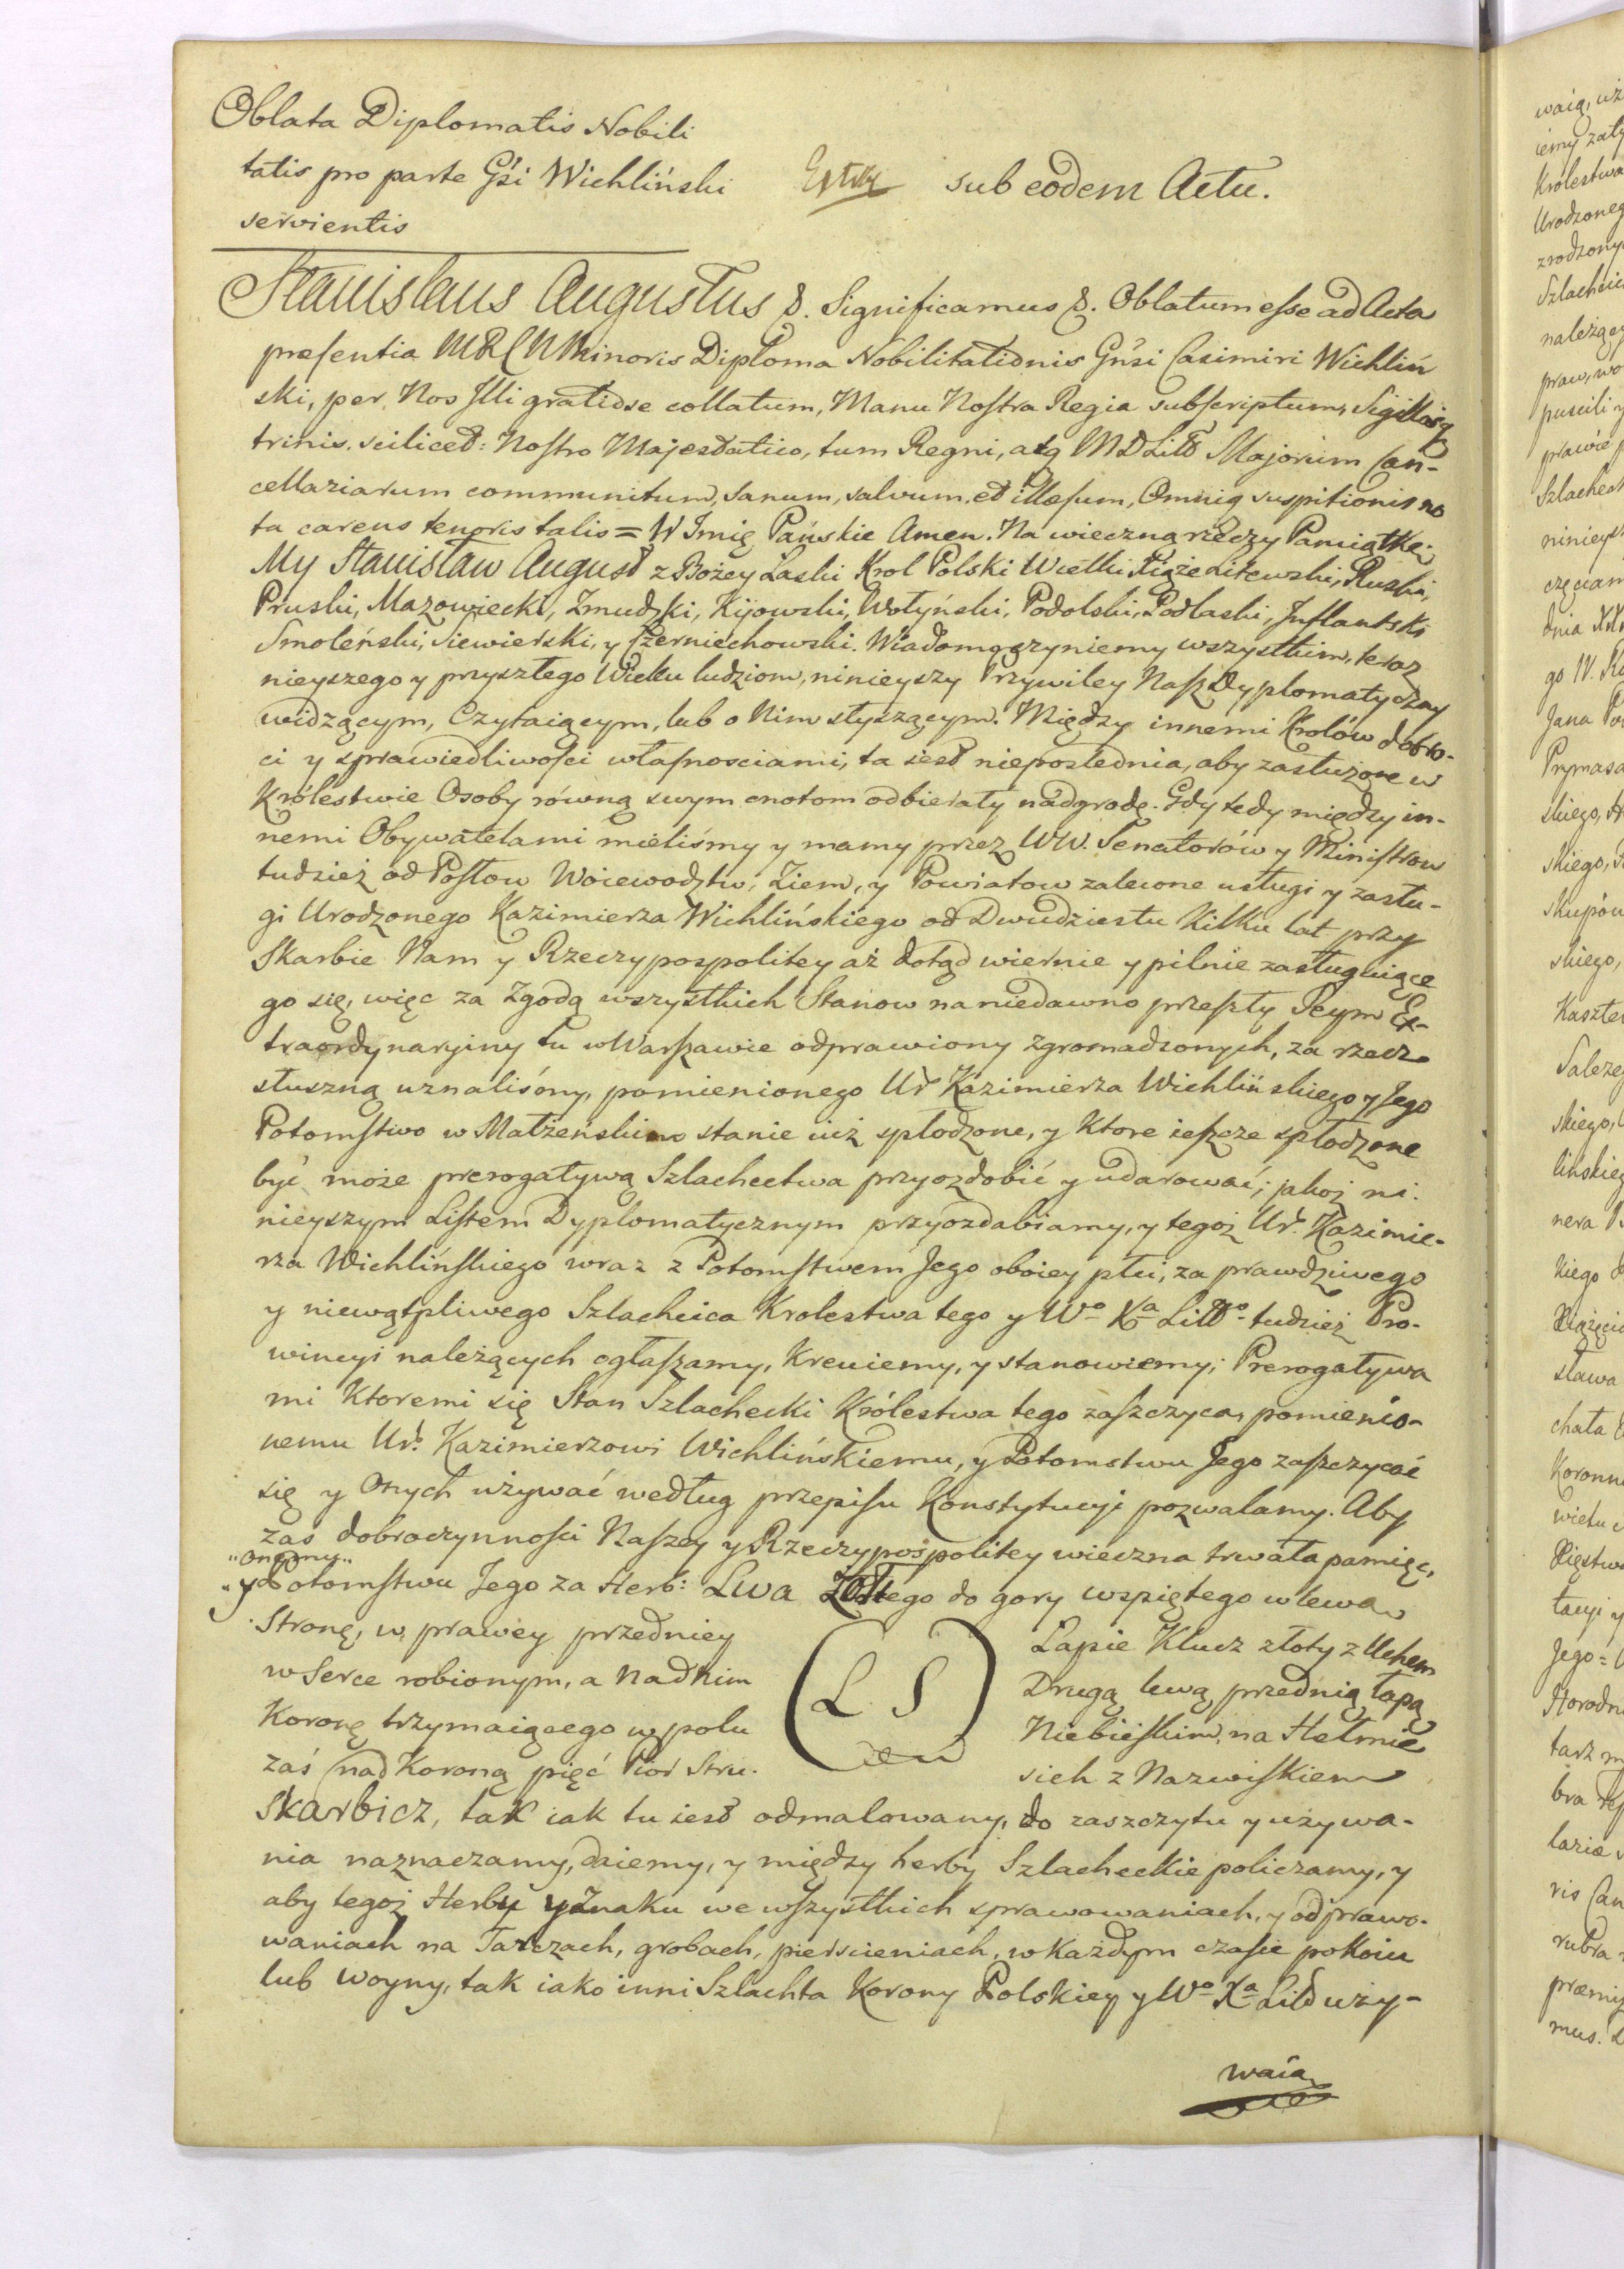 Oblata Diplomatis Nobili
tatis pro parte Gśi Wichliński
servientis
sub eodem Actu.
Stanislaus Augustus &. Significamus &. Oblatum esse ad Acta
præsentia MRCMMinoris Diploma Nobilitationis Gnśi Casimiri Wichliń
ski, per Nos Illi gratiose collatum, Manu Nostra Regia subscriptum, Sigillisq
trinis. scilicet: Nostro Majestatico, tum Regni, atq MDLitt Majorum Can-
cellariarum communitum, sanum, salvum et illæsum, Omniq suspitionis no
ta carens tenoris talis = W Imię Pańskie Amen. Na wieczną rzeczy Pamiątkę.
My Stanisław August z Bożey Łaski Krol Polski Wielki Xiąże Litewski, Ruski,
Pruski, Mazowiecki, Zmudzki, Kijowski, Wołyński, Podolski, Podlaski, Inflantski
Smoleński, Siewierski, y Czerniechowski. Wiadomo czyniemy wszystkim, teraz
nieyszego y przyszłego Wieku ludziom, ninieyszy Przywiley Nasz Dyplomatyczny
widzącym, Czytaiącym, lub o Nim słyszącym. Między innemi Krolów dobro-
ci y sprawiedliwości własnosciami, ta iest nieposlednia, aby zasłużone w
Królestwie Osoby równą swym cnotom odbierały nadgrodę. Gdy tedy między in-
nemi Obywatelami mieliśmy y mamy przez WW. Senatorów y Ministrow
tudzież od Posłow Woiewodztw, Ziem, y Powiatow zalecone usługi y zasłu-
gi Urodzonego Kazimierza Wichlińskiego od Dwudziestu Kilku lat przy
Skarbie Nam y Rzeczypospolitey aż dotąd wiernie y pilnie zasługuiące
go się, więc za Zgodą wszystkich Stanow na niedawno przeszły Seym Ex-
traordynaryiny tu w Warszawie odprawiony zgromadzonych, za rzecz
słuszną uznaliśmy, pomienionego Ur Kazimierza Wichlińskiego y Jego
Potomstwo w Małżeńskim stanie iuż spłodzone, y Ktore ieszcze spłodzone
być może prerogatywą Szlachectwa przyozdobić y udarować; jakoż ni:
nieyszym Listem Dyplomatycznym przyozdabiamy, y tegoż Ur. Kazimie-
rza Wichlińskiego wraz z Potomstwem Jego oboiey płci, za prawdziwego
y niewątpliwego Szlachcica Krolestwa tego y Wo Xa Littgo tudzież Pro-
wincyi należących ogłaszamy, Kreuiemy, y stanowiemy; Prerogatywa
mi Ktoremi się Stan Szlachecki Królestwa tego zaszczyca, pomienio-
nemu Ur. Kazimierzowi Wichlińskiemu, y Potomstwu Jego zaszczycać
się y Onych używać według przepisu Konstytucyi pozwalamy. Aby
zas dobroczynności Naszey y Rzeczypospolitey wieczna trwała pamięć,
„onemu„
„y Potomstwu Jego za Herb: Lwa Zółtego do gory wspiętego w lewą
Stronę, w prawey przedniey Łapie Klucz złoty z Uchem
w Serce robionym, a Nad nim Drugą lewą przednią łapą
Koronę trzymaiącego w polu Niebieskim, na Hełmie
zaś nad Koroną pięć Piór Stru- sich z Nazwiskiem
(L S)
Skarbicz, tak iak tu iest odmalowany, do zaszczytu y używa-
nia naznaczamy, daiemy, y między herby Szlacheckie policzamy, y
aby tegoż Herbu y Znaku we wszystkich sprawowaniach, y odprawo-
waniach na Tarczach, grobach, pierścieniach, w każdym czasie pokoiu
lub woyny, tak iako inni Szlachta Korony Polskiey y Wo Xa Litt uży-
waią